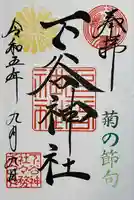 奉拝
菊の節句
下谷神社
令和五年
九月九日